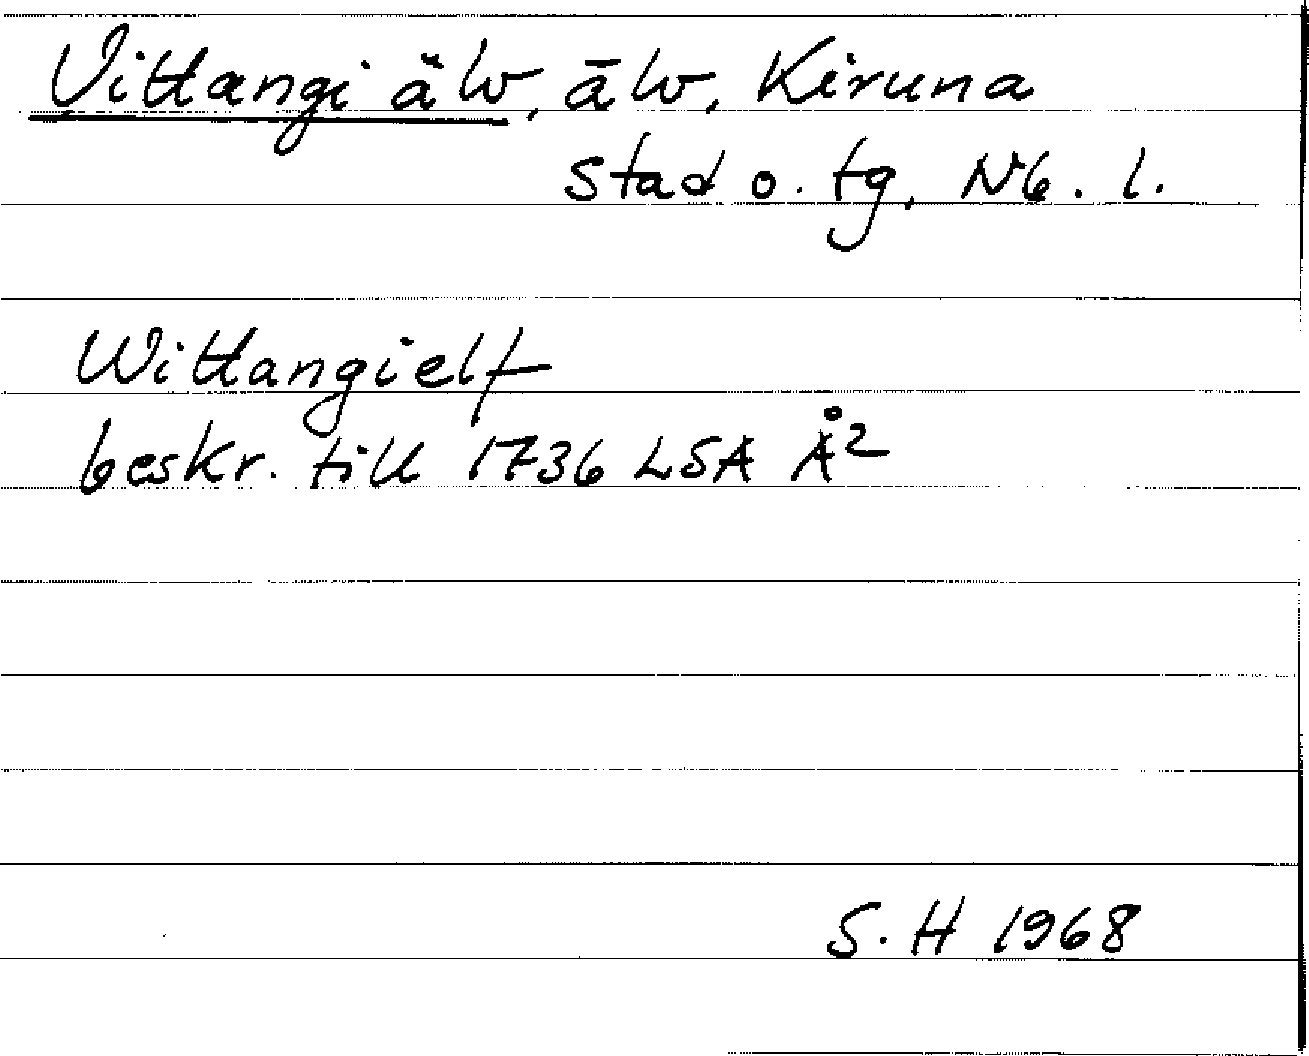 Vittangi älv, älv, Kiruna
stad o. tg, Nb. l.
Wittangielf
beskr. till 1736 LSA Å2
S. H 1968